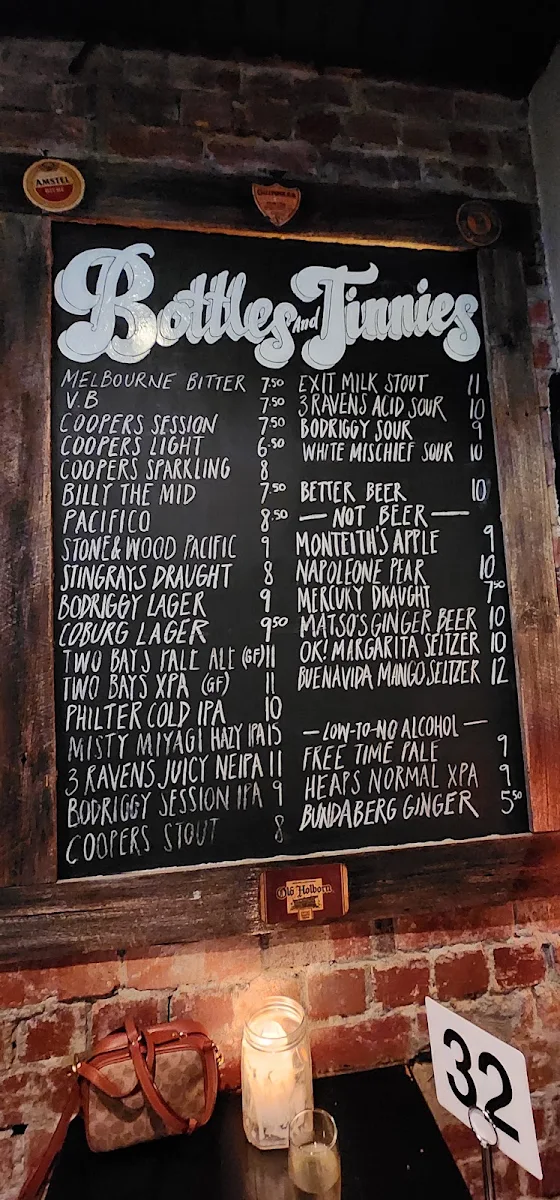 AMSTEL
Bottles and Tinnies
MELBOURNE BITTER 7.50
V.B 7.50
COOPERS SESSION 7.50
COOPERS LIGHT 6.50
COOPERS SPARKLING 8
BILLY THE MID 7.50
PACIFICO 8.50
STONE & WOOD PACIFIC 9
STINGRAYS DRAUGHT 8
BODRIGGY LAGER 9
COBURG LAGER 9.50
TWO BAYS PALE ALE (GF) 11
TWO BAYS XPA (GF) 11
PHILTER COLD IPA 10
MISTY MIYAGI HAZY IPA 15
3 RAVENS JUICY NEIPA 11
BODRIGGY SESSION IPA 9
COOPERS STOUT 8
EXIT MILK STOUT 11
3 RAVENS ACID SOUR 10
BODRIGGY SOUR 9
WHITE MISCHIEF SOUR 10
BETTER BEER 10
— NOT BEER —
MONTEITH'S APPLE 9
NAPOLEONE PEAR 10
MERCURY DRAUGHT 7.50
MATSO'S GINGER BEER 10
OK! MARGARITA SELTZER 10
BUENAVIDA MANGO SELTZER 12
— LOW-TO-NO ALCOHOL —
FREE TIME PALE 9
HEAPS NORMAL XPA 9
BUNDABERG GINGER 5.50
Old Holborn
32